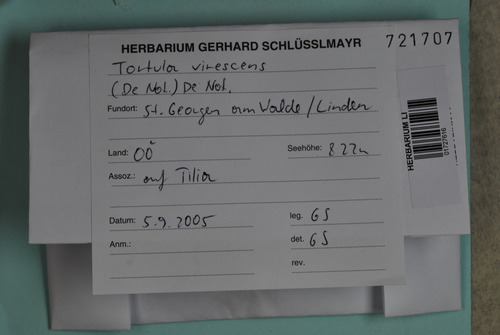 HERBARIUM GERHARD SCHLÜSSLMAYR 721707
Tortula virescens
(De Not.) De Not.
Fundort: St. Georgen am Walde / Linden
Land: OÖ Seehöhe: 822m
Assoz.: auf Tilia
Datum: 5.9.2005 leg. GS
Anm.: det. GS
rev.
HERBARIUM LI
01727616